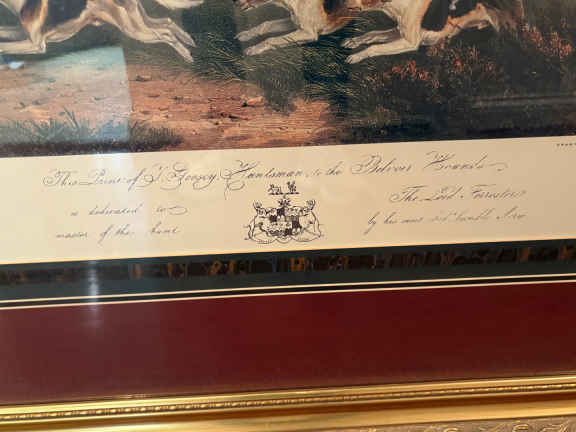 This Print of T. Goosey, Huntsman to the Belvoir Hounds
is dedicated to
The Lord Forester
master of the hunt
by his most ob.t humble Serv